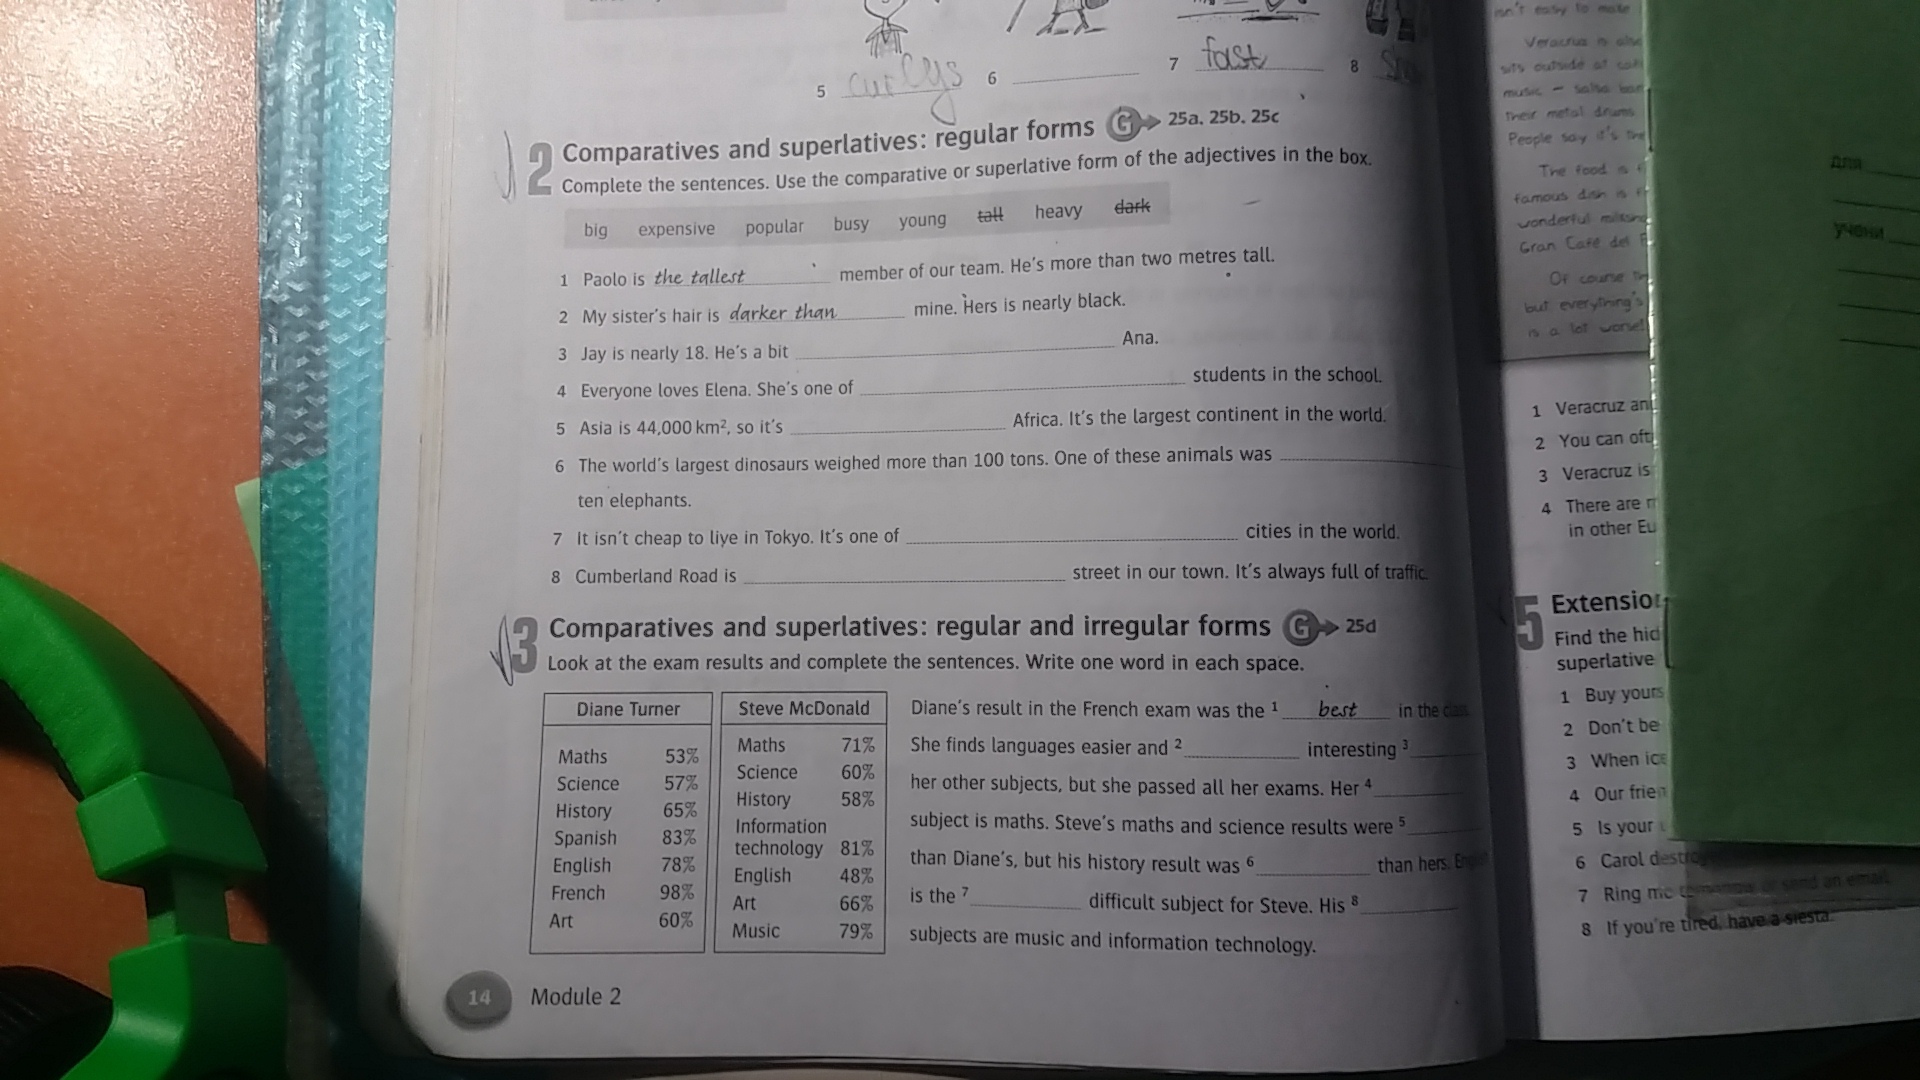 5 curlys 6 7 fast 8
2 Comparatives and superlatives: regular forms G 25a, 25b, 25c
Complete the sentences. Use the comparative or superlative form of the adjectives in the box.
big expensive popular busy young tall heavy dark
1 Paolo is the tallest member of our team. He's more than two metres tall.
2 My sister's hair is darker than mine. Hers is nearly black.
3 Jay is nearly 18. He's a bit Ana.
4 Everyone loves Elena. She's one of students in the school.
5 Asia is 44,000 km², so it's Africa. It's the largest continent in the world.
6 The world's largest dinosaurs weighed more than 100 tons. One of these animals was
ten elephants.
7 It isn't cheap to live in Tokyo. It's one of cities in the world.
8 Cumberland Road is street in our town. It's always full of traffic.
3 Comparatives and superlatives: regular and irregular forms G 25d
Look at the exam results and complete the sentences. Write one word in each space.
Diane Turner
Maths 53%
Science 57%
History 65%
Spanish 83%
English 78%
French 98%
Art 60%
Steve McDonald
Maths 71%
Science 60%
History 58%
Information
technology 81%
English 48%
Art 66%
Music 79%
Diane's result in the French exam was the 1 best in the class.
She finds languages easier and 2 interesting 3
her other subjects, but she passed all her exams. Her 4
subject is maths. Steve's maths and science results were 5
than Diane's, but his history result was 6 than hers. English
is the 7 difficult subject for Steve. His 8
subjects are music and information technology.
14 Module 2
isn't easy to make
Veracruz is also
sits outside at
music – salsa
their metal drums
People say it's the
The food is
famous dish is
wonderful
Gran Café del
Of course
but everything's
is a lot worse!
1 Veracruz
2 You can
3 Veracruz is
4 There are
in other
5 Extension
Find the
superlative
1 Buy
2 Don't be
3 When
4 Our
5 Is your
6 Carol
7 Ring me tomorrow or send an email.
8 If you're tired, have a siesta.
для